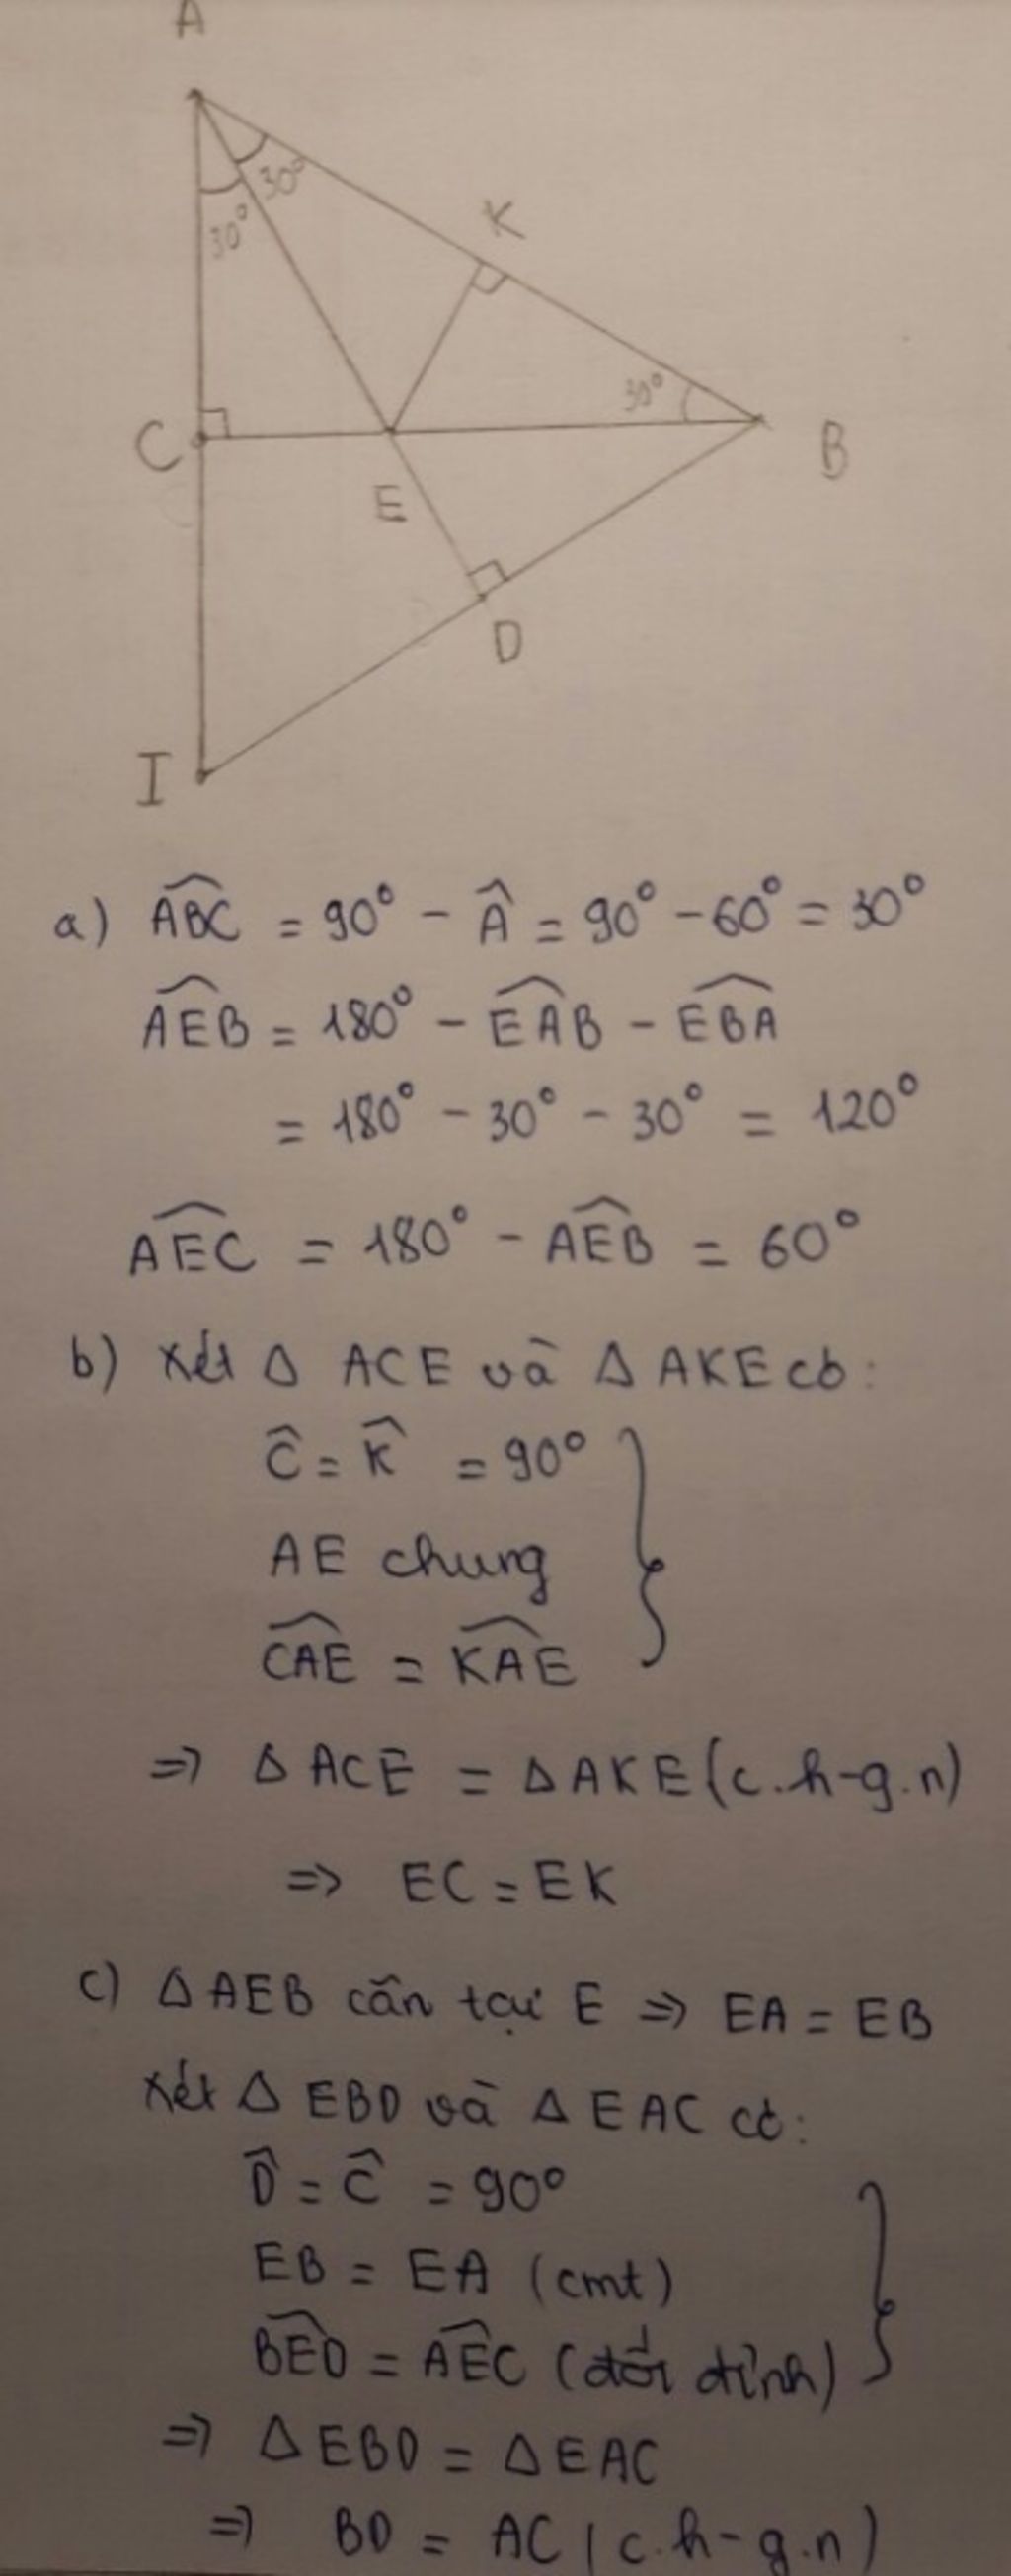 A
30°
30°
K
30°
C
B
E
D
I
a) \widehat{ABC} = 90° - \widehat{A} = 90° - 60° = 30°
\widehat{AEB} = 180° - \widehat{EAB} - \widehat{EBA}
= 180° - 30° - 30° = 120°
\widehat{AEC} = 180° - \widehat{AEB} = 60°
b) Xét Δ ACE và Δ AKE có:
\widehat{C} = \widehat{K} = 90°
AE chung
\widehat{CAE} = \widehat{KAE}
=> Δ ACE = Δ AKE (c.h-g.n)
=> EC = EK
c) Δ AEB cân tại E => EA = EB
Xét Δ EBD và Δ EAC có:
\widehat{D} = \widehat{C} = 90°
EB = EA (cmt)
\widehat{BED} = \widehat{AEC} (đối đỉnh)
=> Δ EBD = Δ EAC
=> BD = AC (c.h-g.n)